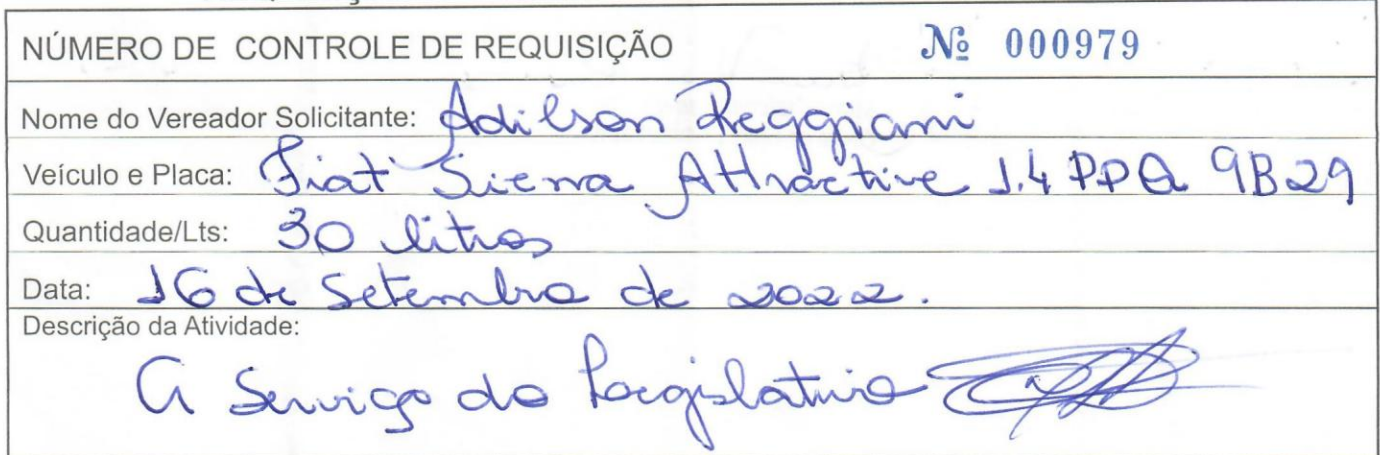 NÚMERO DE CONTROLE DE REQUISIÇÃO Nº 000979
Nome do Vereador Solicitante: Adilson Reggiani
Veículo e Placa: Fiat Siena Attractive 1.4 PPQ 9B29
Quantidade/Lts: 30 litros
Data: 16 de Setembro de 2022.
Descrição da Atividade:
A Serviço do Legislativo